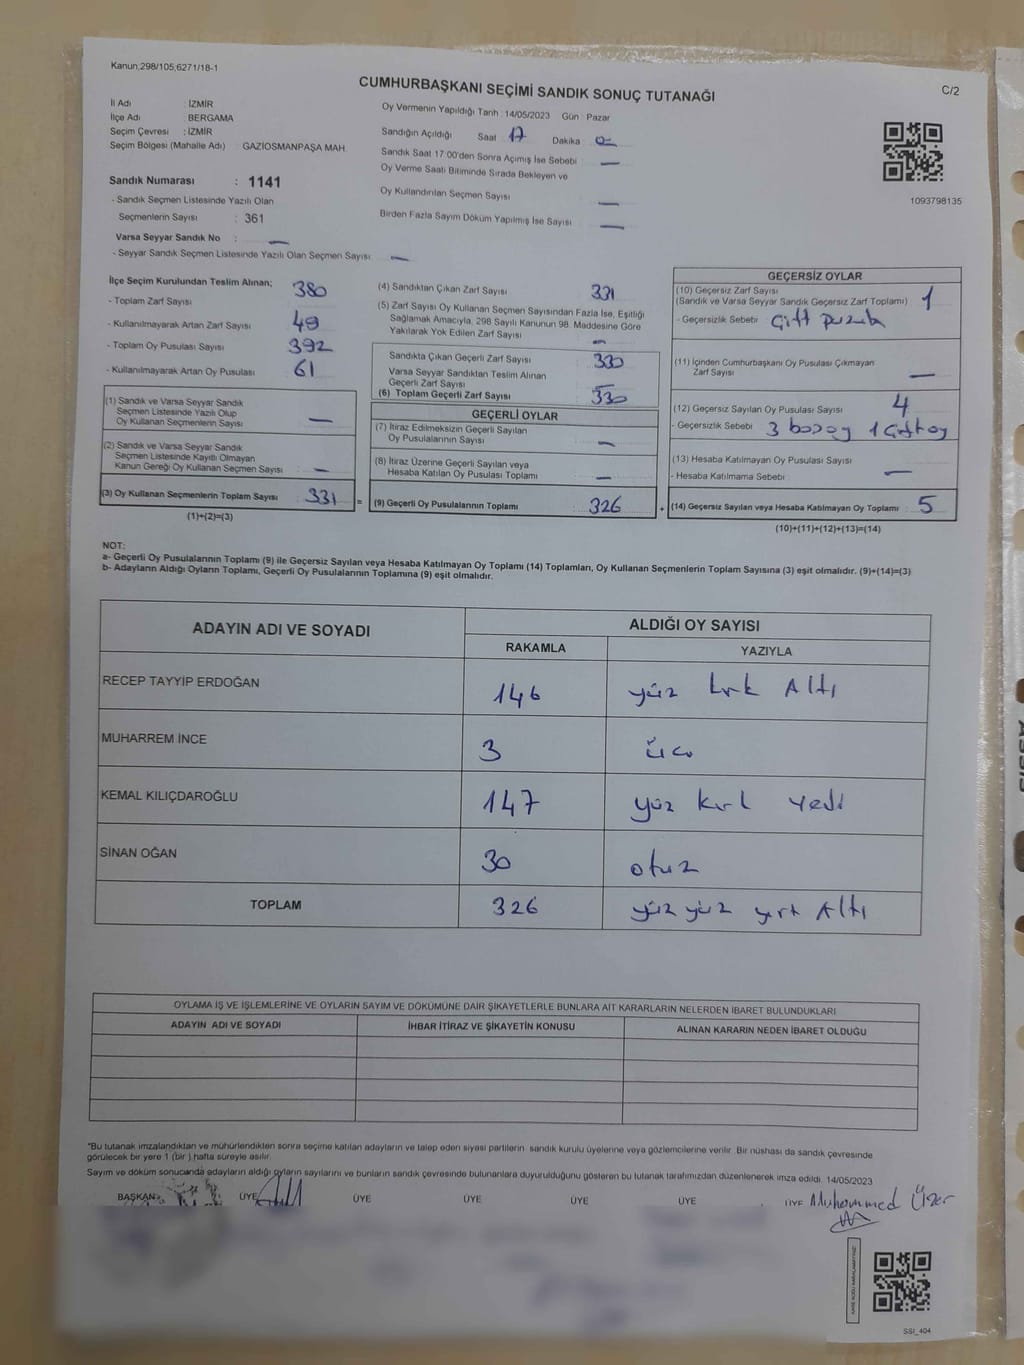 Kanun;298/105,6271/18-1
C/2
CUMHURBAŞKANI SEÇİMİ SANDIK SONUÇ TUTANAĞI
İl Adı : İZMİR
İlçe Adı : BERGAMA
Seçim Çevresi : İZMİR
Seçim Bölgesi (Mahalle Adı) GAZİOSMANPAŞA MAH.
Oy Vermenin Yapıldığı Tarih : 14/05/2023 Gün : Pazar
Sandığın Açıldığı Saat 17 Dakika 0-
Sandık Saat 17:00'den Sonra Açımış İse Sebebi —
Oy Verme Saati Bitiminde Sırada Bekleyen ve
Oy Kullandırılan Seçmen Sayısı —
Birden Fazla Sayım Döküm Yapılmış İse Sayısı —
1093798135
Sandık Numarası : 1141
- Sandık Seçmen Listesinde Yazılı Olan
Seçmenlerin Sayısı : 361
Varsa Seyyar Sandık No : —
- Seyyar Sandık Seçmen Listesinde Yazılı Olan Seçmen Sayısı —
İlçe Seçim Kurulundan Teslim Alınan; 380
- Toplam Zarf Sayısı
- Kullanılmayarak Artan Zarf Sayısı 49
- Toplam Oy Pusulası Sayısı 392
- Kullanılmayarak Artan Oy Pusulası 61
(1) Sandık ve Varsa Seyyar Sandık
Seçmen Listesinde Yazılı Olup
Oy Kullanan Seçmenlerin Sayısı —
(2) Sandık ve Varsa Seyyar Sandık
Seçmen Listesinde Kayıtlı Olmayan
Kanun Gereği Oy Kullanan Seçmen Sayısı —
(3) Oy Kullanan Seçmenlerin Toplam Sayısı 331 =
(1)+(2)=(3)
(4) Sandıktan Çıkan Zarf Sayısı 331
(5) Zarf Sayısı Oy Kullanan Seçmen Sayısından Fazla İse, Eşitliği
Sağlamak Amacıyla, 298 Sayılı Kanunun 98. Maddesine Göre
Yakılarak Yok Edilen Zarf Sayısı —
Sandıkta Çıkan Geçerli Zarf Sayısı 330
Varsa Seyyar Sandıktan Teslim Alınan
Geçerli Zarf Sayısı
(6) Toplam Geçerli Zarf Sayısı 330
GEÇERLİ OYLAR
(7) İtiraz Edilmeksizin Geçerli Sayılan
Oy Pusulalarının Sayısı —
(8) İtiraz Üzerine Geçerli Sayılan veya
Hesaba Katılan Oy Pusulası Toplamı —
(9) Geçerli Oy Pusulalarının Toplamı 326 +
GEÇERSİZ OYLAR
(10) Geçersiz Zarf Sayısı
(Sandık ve Varsa Seyyar Sandık Geçersiz Zarf Toplamı) 1
- Geçersizlik Sebebi : Çift
(11) İçinden Cumhurbaşkanı Oy Pusulası Çıkmayan
Zarf Sayısı —
(12) Geçersiz Sayılan Oy Pusulası Sayısı 4
- Geçersizlik Sebebi : 3 boş oy 1 Çift oy
(13) Hesaba Katılmayan Oy Pusulası Sayısı
- Hesaba Katılmama Sebebi : —
(14) Geçersiz Sayılan veya Hesaba Katılmayan Oy Toplamı : 5
(10)+(11)+(12)+(13)=(14)
NOT:
a- Geçerli Oy Pusulalarının Toplamı (9) ile Geçersiz Sayılan veya Hesaba Katılmayan Oy Toplamı (14) Toplamları, Oy Kullanan Seçmenlerin Toplam Sayısına (3) eşit olmalıdır. (9)+(14)=(3)
b- Adayların Aldığı Oyların Toplamı, Geçerli Oy Pusulalarının Toplamına (9) eşit olmalıdır.
ADAYIN ADI VE SOYADI ALDIĞI OY SAYISI
RAKAMLA YAZIYLA
RECEP TAYYİP ERDOĞAN 146 yüz kırk Altı
MUHARREM İNCE 3 üç
KEMAL KILIÇDAROĞLU 147 yüz kırk Yedi
SİNAN OĞAN 30 otuz
TOPLAM 326 yüz yüz yırt Altı
OYLAMA İŞ VE İŞLEMLERİNE VE OYLARIN SAYIM VE DÖKÜMÜNE DAİR ŞİKAYETLERLE BUNLARA AİT KARARLARIN NELERDEN İBARET BULUNDUKLARI
ADAYIN ADI VE SOYADI İHBAR İTİRAZ VE ŞİKAYETİN KONUSU ALINAN KARARIN NEDEN İBARET OLDUĞU
*Bu tutanak imzalandıktan ve mühürlendikten sonra seçime katılan adayların ve talep eden siyasi partilerin sandık kurulu üyelerine veya gözlemcilerine verilir. Bir nüshası da sandık çevresinde
görülecek bir yere 1 (bir ) hafta süreyle asılır.
Sayım ve döküm sonucanda adayların aldığı oyların sayılarını ve bunların sandık çevresinde bulunanlara duyurulduğunu gösteren bu tutanak tarafımızdan düzenlenerek imza edildi. 14/05/2023
BAŞKAN ÜYE ÜYE ÜYE ÜYE ÜYE ÜYE Muhammed Üzer
SSI_404